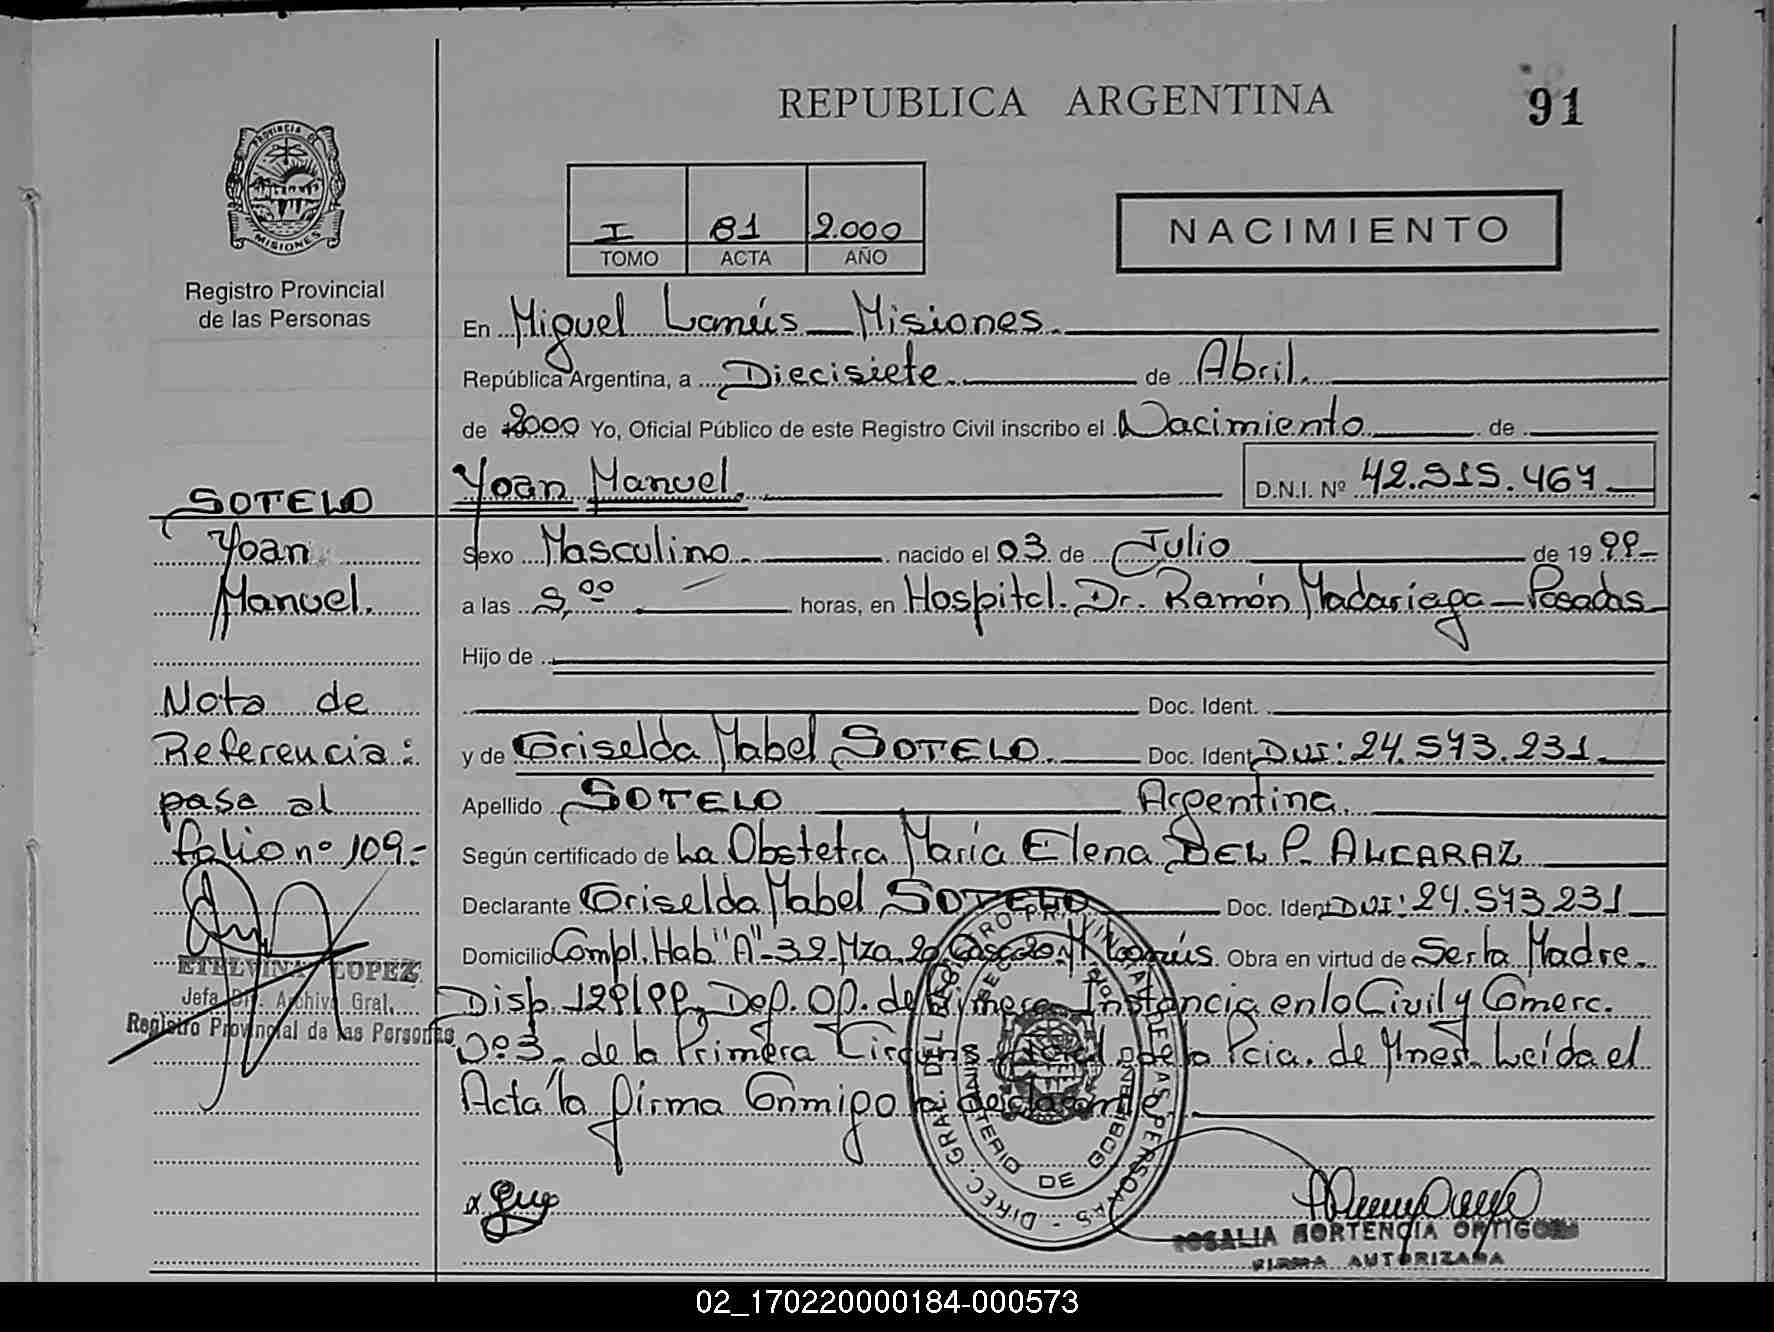 REPUBLICA ARGENTINA
91
PROVINCIA DE MISIONES
Registro Provincial
de las Personas
I 81 2.000
TOMO ACTA AÑO
NACIMIENTO
En Miguel Lanús Misiones.
República Argentina, a Diecisiete de Abril.
de 2000 Yo, Oficial Público de este Registro Civil inscribo el Nacimiento de
Yoan Manuel. D.N.I. Nº 42.515.467
Sexo Masculino nacido el 03 de Julio de 1999-
a las 5,00 horas, en Hospital. Dr. Ramón Madariaga - Posadas
Hijo de
Doc. Ident.
y de Griselda Mabel SOTELO. Doc. Ident DNI: 24.573.231
Apellido SOTELO Argentina.
Según certificado de La Obstetra María Elena DEL P. ALCARAZ
Declarante Griselda Mabel SOTELO Doc. Ident DNI: 24.573.231
Domicilio Compl. Hab "A"-32-Mza. 20 Casa 20. M Lanús. Obra en virtud de Ser la Madre.
Disp. 129/99, Def. Of. de Primera Instancia en lo Civil y Comerc.
Nº 3, de la Primera Circuns. de la Pcia. de Mnes. Leída el
Acta la firma Conmigo la declarante
ROSALIA HORTENCIA ORTIGOZA
FIRMA AUTORIZADA
DIREC. GRAL. DEL REGISTRO PROVINCIAL DE LAS PERSONAS
MINISTERIO DE GOBIERNO
SOTELO
Yoan
Manuel.
Nota de
Referencia:
pasa al
folio nº 109.-
ETELVINA LOPEZ
Jefa Archivo Gral.
Registro Provincial de las Personas
02_170220000184-000573